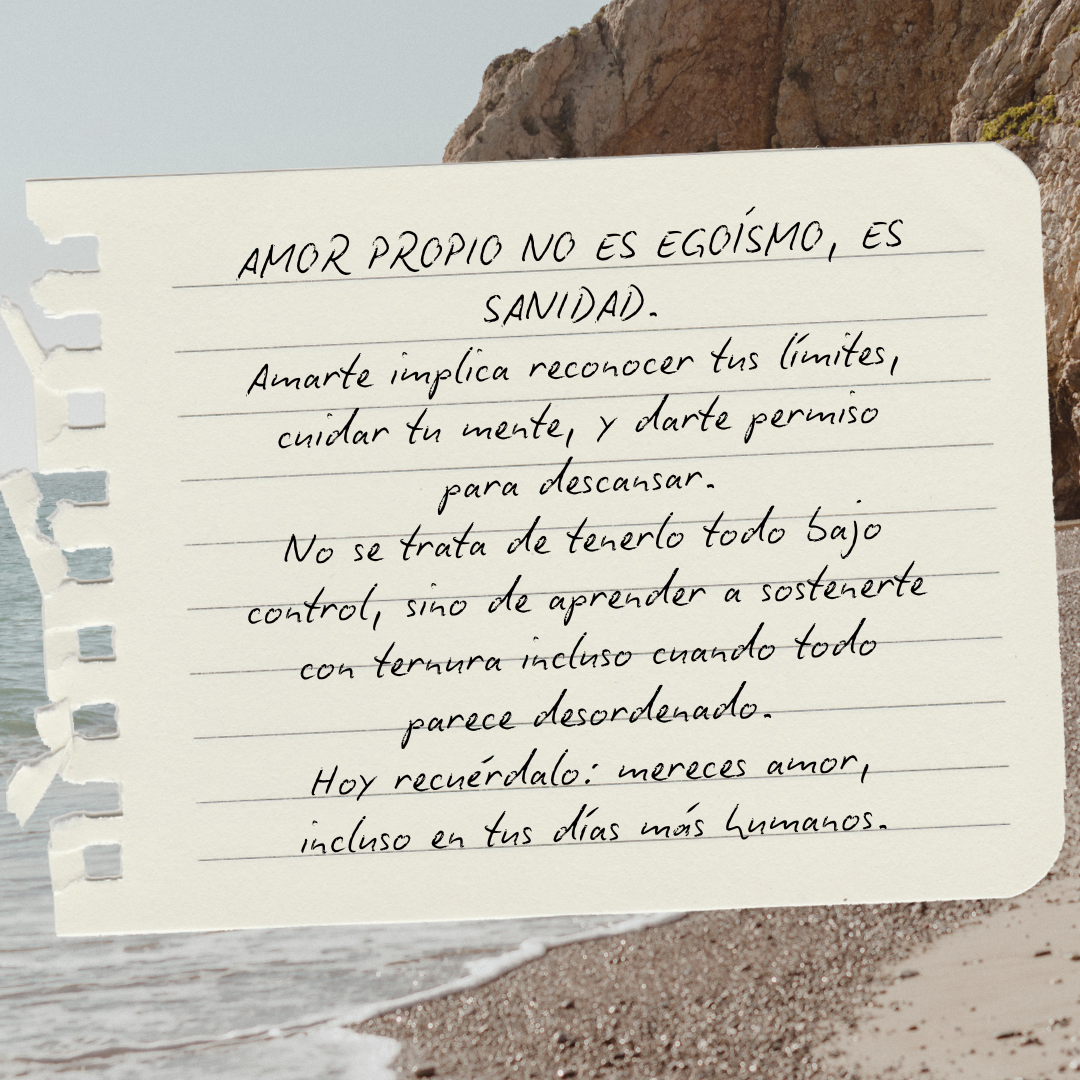 AMOR PROPIO NO ES EGOÍSMO, ES
SANIDAD.
Amarte implica reconocer tus límites,
cuidar tu mente, y darte permiso
para descansar.
No se trata de tenerlo todo bajo
control, sino de aprender a sostenerte
con ternura incluso cuando todo
parece desordenado.
Hoy recuérdalo: mereces amor,
incluso en tus días más humanos.